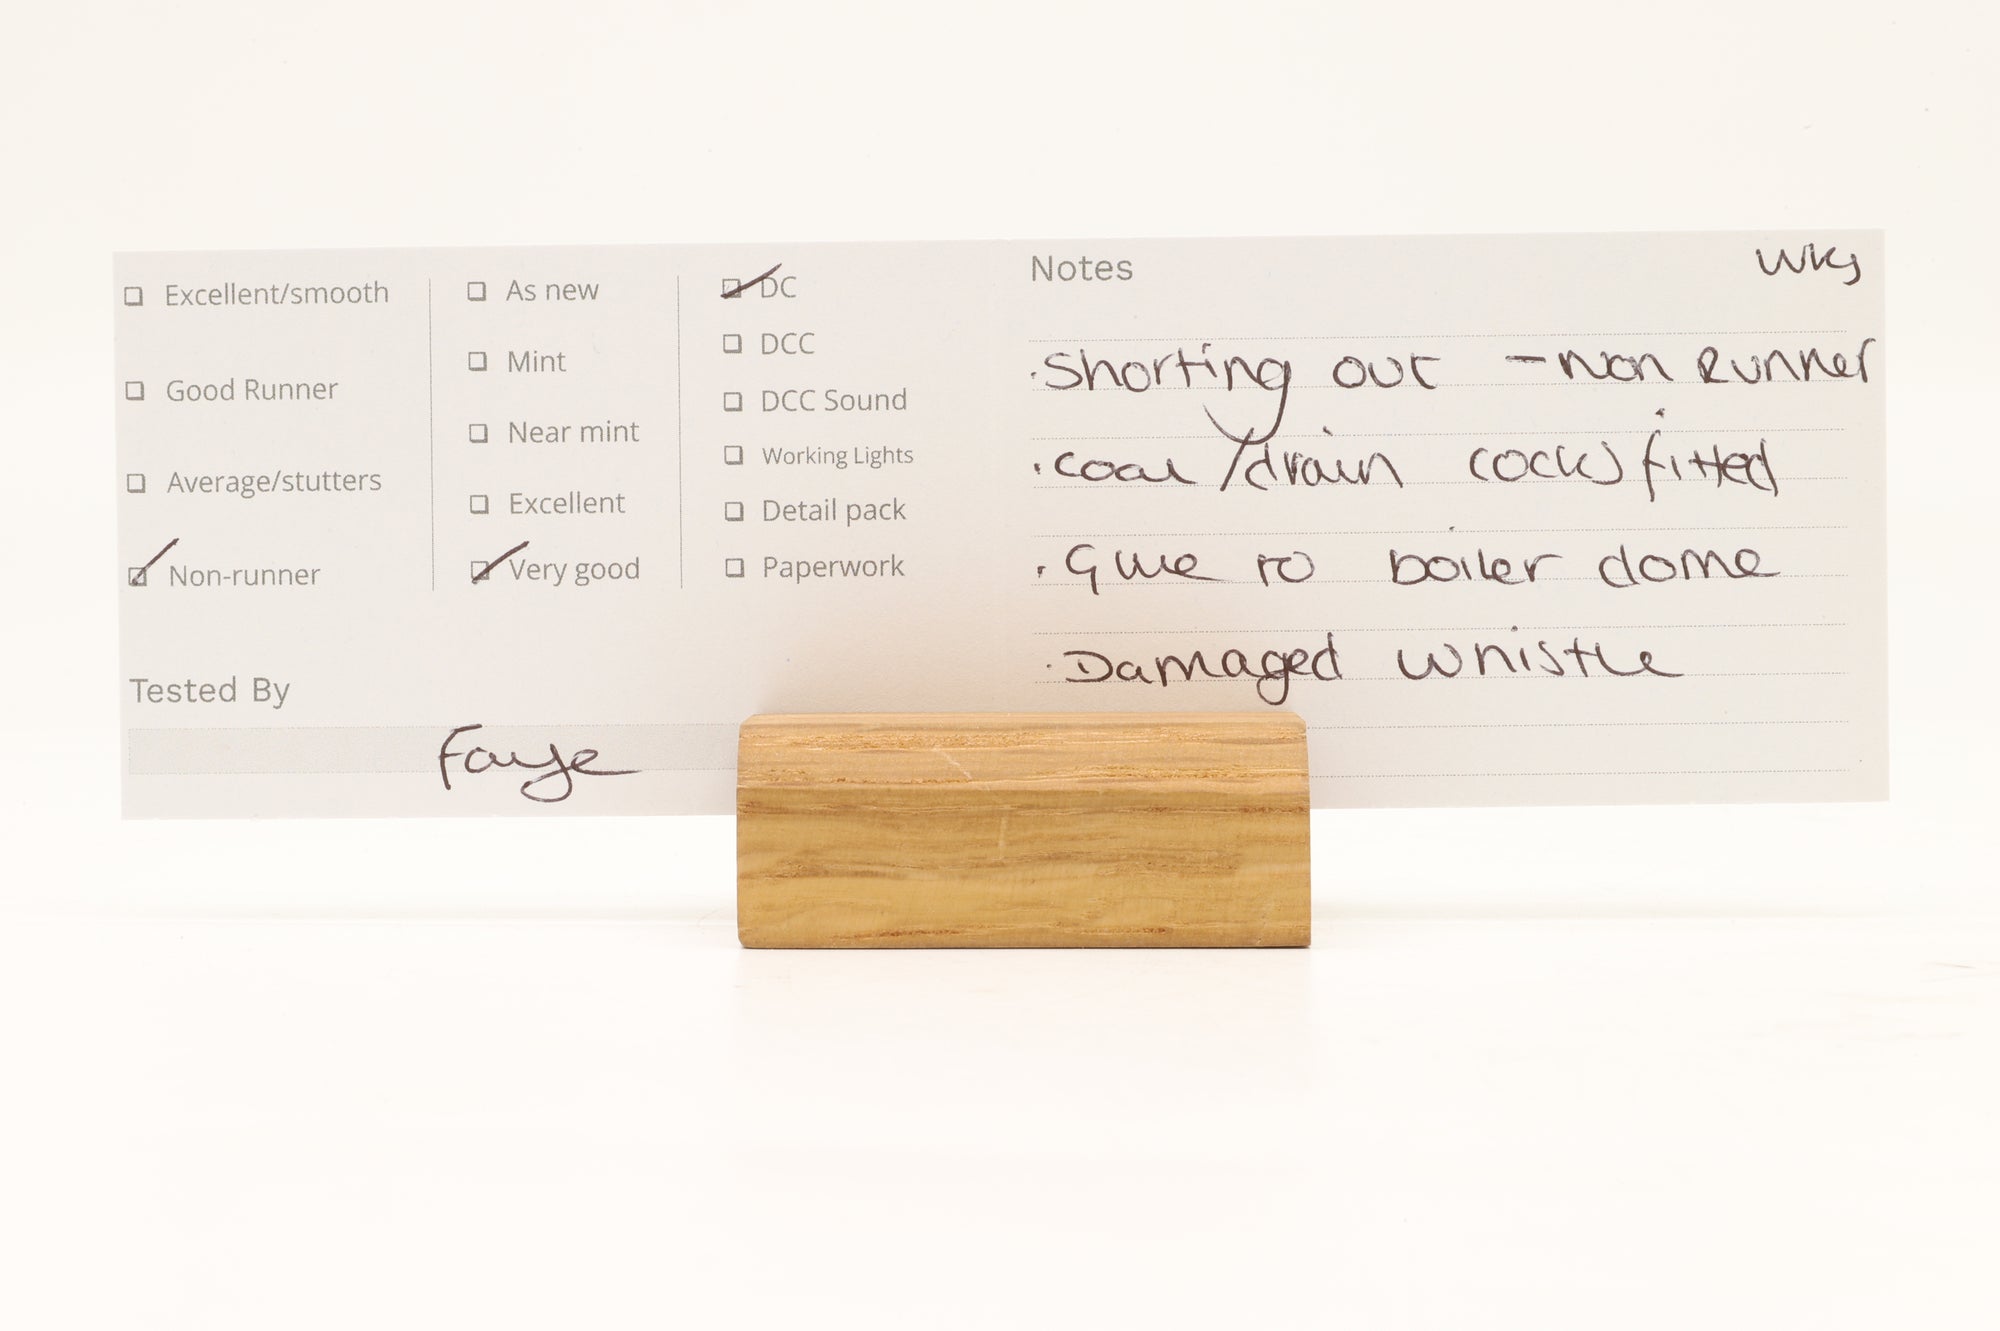 Excellent/smooth
Good Runner
Average/stutters
Non-runner
As new
Mint
Near mint
Excellent
Very good
DC
DCC
DCC Sound
Working Lights
Detail pack
Paperwork
Tested By
Faye
Notes
·Shorting out - non Runner
·coal/drain cocks fitted
·Glue to boiler dome
·Damaged whistle